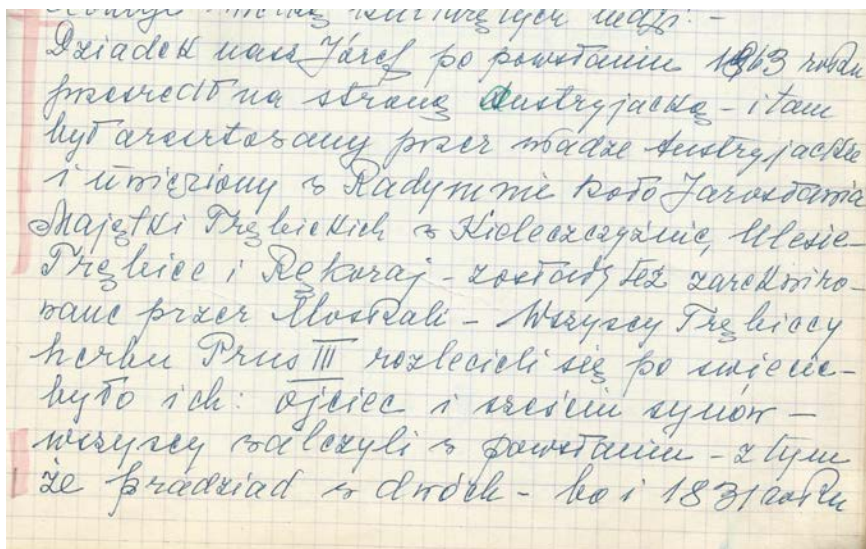 kulturę tych ludzi. -
Dziadek nasz Józef po powstaniu 1863 roku
przeszedł na stronę Austryjacką - i tam
był aresztowany przez władze Austryjackie
i uwięziony w Radymnie koło Jarosławia
Majątki Trębickich w Kieleczczyźnie, Ulesie-
Trębice i Rękoraj - zostały też zarekwiro-
wane przez Moskali - Wszyscy Trębiccy
herbu Prus III rozlecieli się po świecie-
było ich: ojciec i sześciu synów -
wszyscy walczyli w powstaniu - z tym
że pradziad w dwóch - bo i 1831 roku